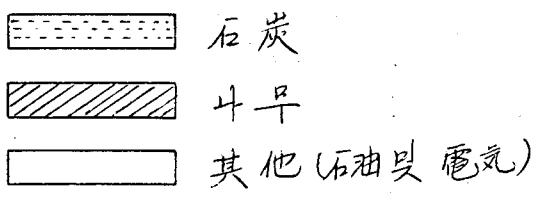 石炭
나무
其他(石油및 電気)